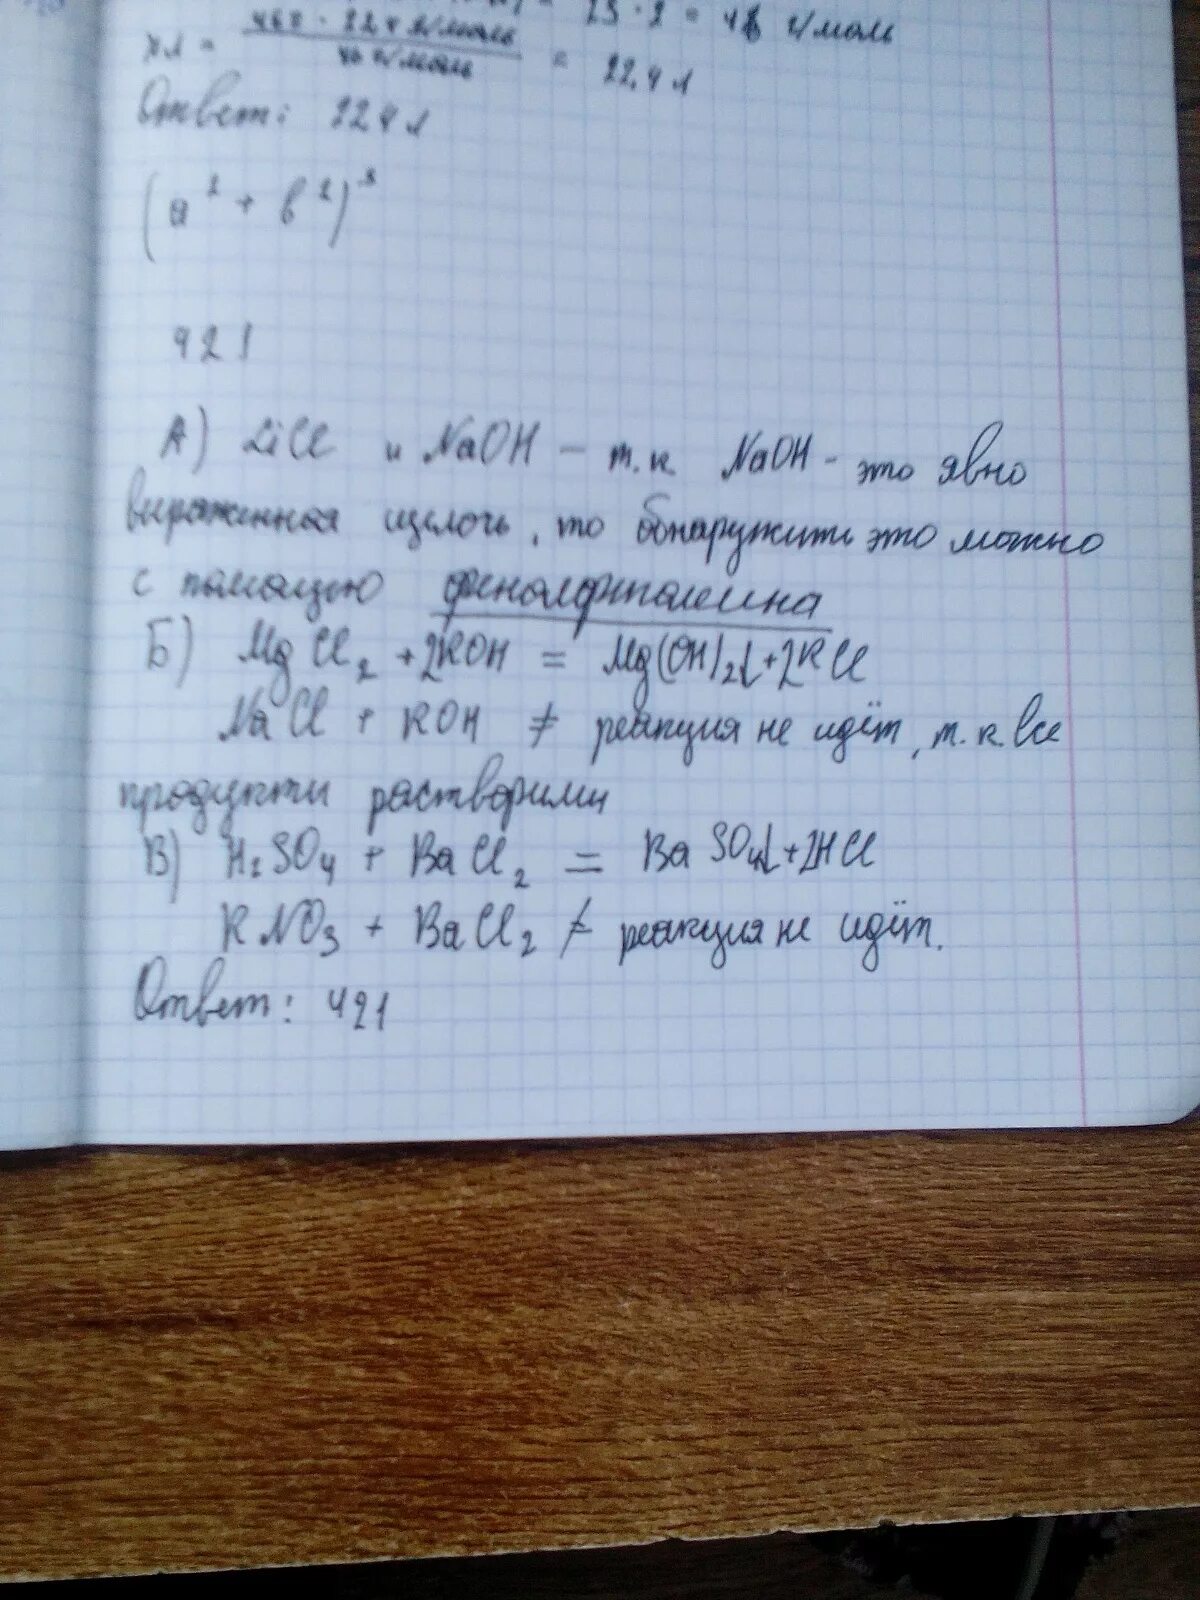 = 23 · 2 = 46 г/моль
хл = 46г · 22,4 л/моль / 46 г/моль = 22,4 л
Ответ: 22,4 л
(a² + b²)²
421
А) LiCl и NaOH – т.к. NaOH - это явно
выраженная щелочь, то обнаружить это можно
с помощью фенолфталеина
Б) MgCl₂ + 2KOH = Mg(OH)₂↓ + 2KCl
NaCl + KOH ≠ реакция не идёт, т.к. все
продукты растворимы
В) H₂SO₄ + BaCl₂ = BaSO₄↓ + 2HCl
KNO₃ + BaCl₂ ≠ реакция не идёт.
Ответ: 421